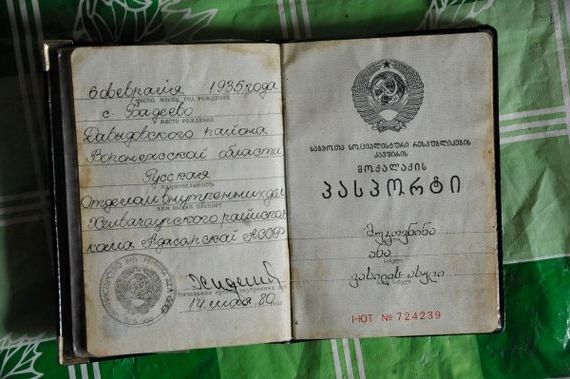 6 февраля 1935 года
число, месяц, год рождения
с. Бадеево
место рождения
Давыдовского района
Воронежской области
Русская
национальность
Отделом внутренних дел
кем выдан паспорт
Хелвачаурского райисполкома Аджарской АССР
14 мая 80 года
საბჭოთა სოციალისტური რესპუბლიკების
კავშირის
მოქალაქის
პასპორტი
ანა
ვასილის ასული
I-ЮТ № 724239